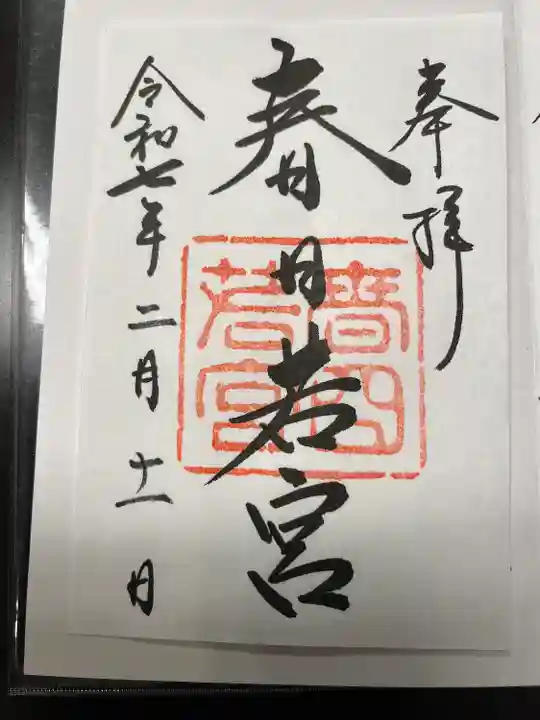 奉拝
春日若宮
春日若宮
令和七年二月十一日